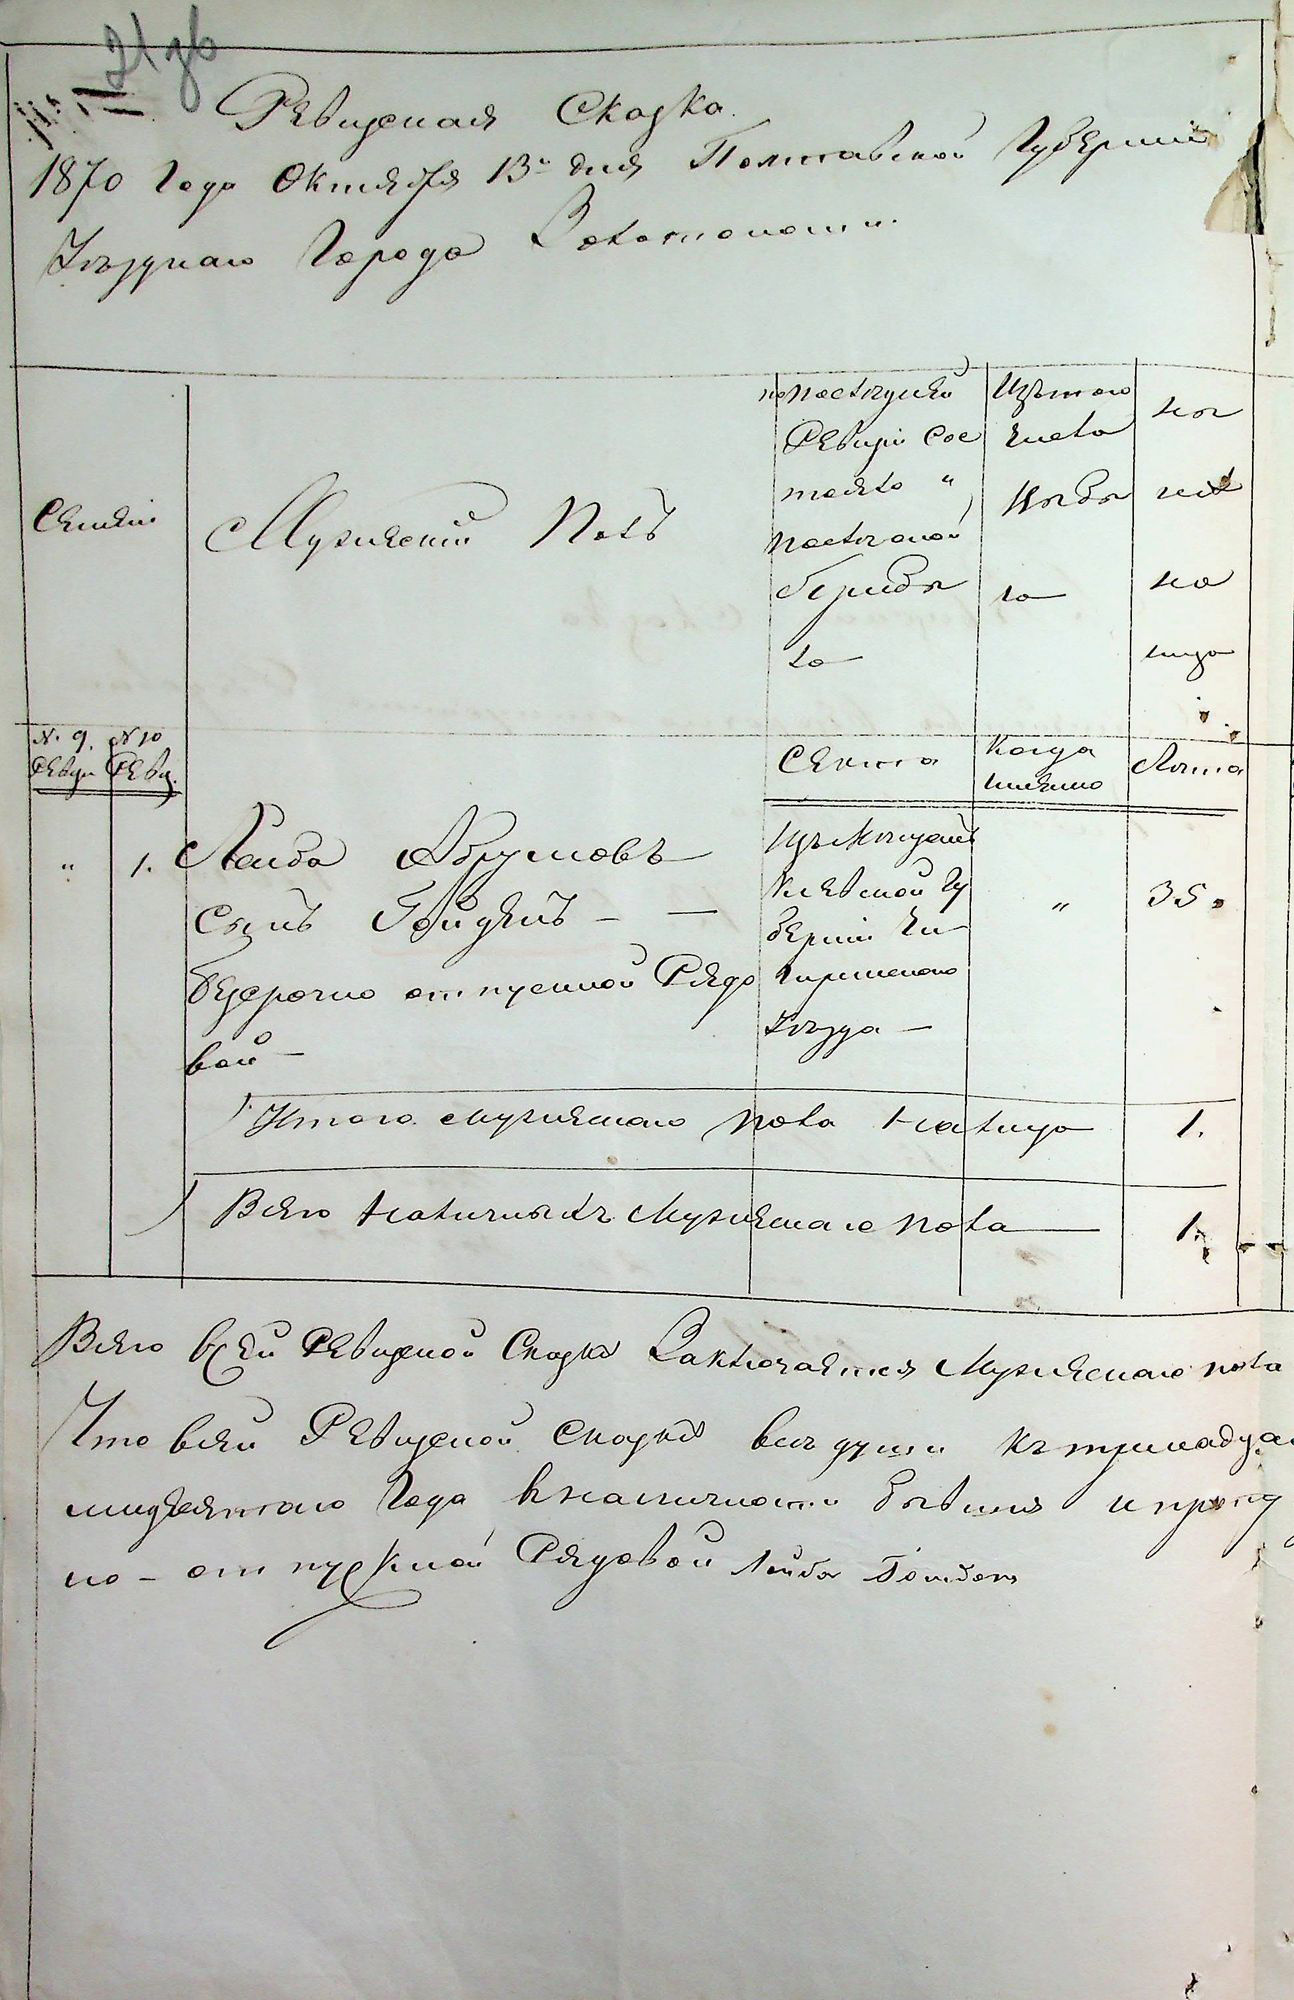 Ревизская Сказка
1870 Года Октября 13го дня Полтавской Губерніи
Уѣзднаго Города Золотоноши
Семьи
Мужескій Полъ
по послѣдней
Ревизіи сос
тояло и
послѣ оной
прибы
ло
Изъ того
числа
выбы
ло
ны
нѣ
на
лицо
№. 9.
Ревиз
№ 10
Ревиз.
Сколко
Когда
имянно
Лѣта
" 1. Лейба Абрумовъ
сынъ
безсрочно отпускной Рядо
вой
Изъ мѣщанъ
Кіевской Гу
берніи Чи
гиринского
Уѣзда
"
35.
Итого мужескаго пола налицо 1.
Всего наличныхъ Мужескаго пола 1.
Всего в сей Ревизской Сказкѣ Заключается Мужескаго пола
Что в сей Ревизской сказкѣ всѣ души
Года в наличности бывшія
но - отпускной Рядовой Лейба